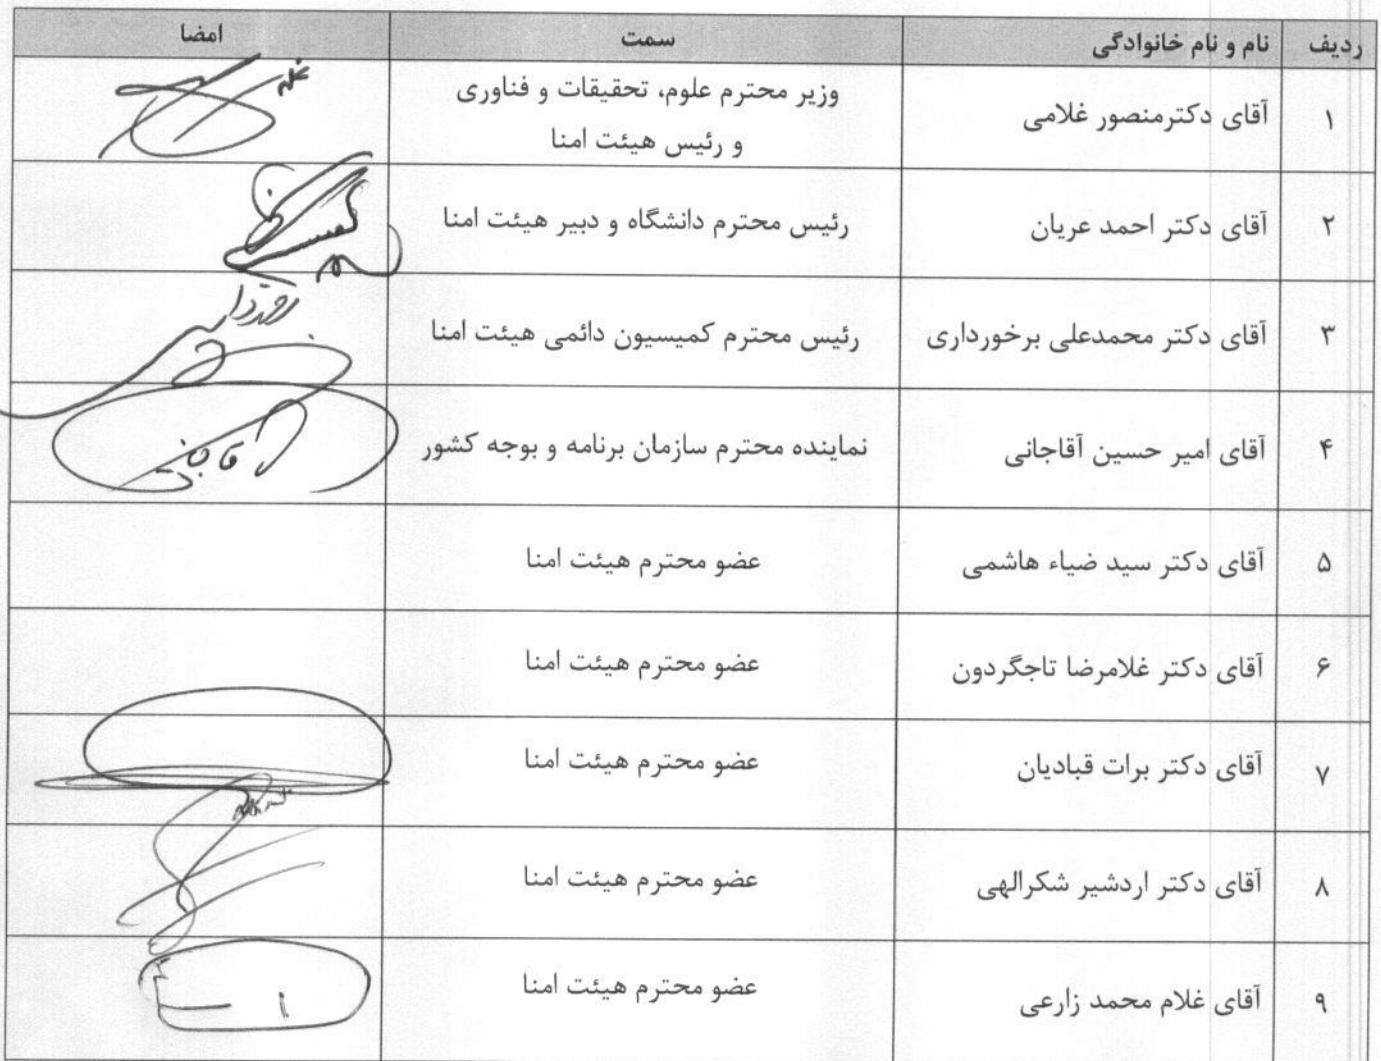 ردیف نام و نام خانوادگی سمت امضا
۱ آقای دکترمنصور غلامی وزیر محترم علوم، تحقیقات و فناوری
و رئیس هیئت امنا
۲ آقای دکتر احمد عریان رئیس محترم دانشگاه و دبیر هیئت امنا
۳ آقای دکتر محمدعلی برخورداری رئیس محترم کمیسیون دائمی هیئت امنا
۴ آقای امیر حسین آقاجانی نماینده محترم سازمان برنامه و بوجه کشور
۵ آقای دکتر سید ضیاء هاشمی عضو محترم هیئت امنا
۶ آقای دکتر غلامرضا تاجگردون عضو محترم هیئت امنا
۷ آقای دکتر برات قبادیان عضو محترم هیئت امنا
۸ آقای دکتر اردشیر شکرالهی عضو محترم هیئت امنا
۹ آقای غلام محمد زارعی عضو محترم هیئت امنا